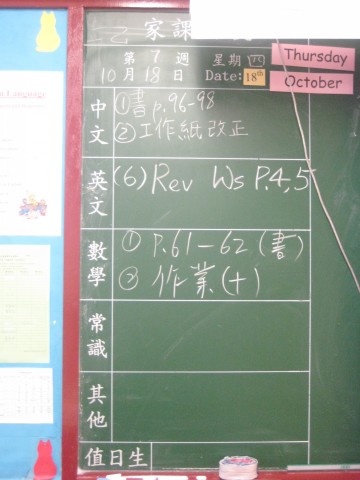 家課
Thursday
第 7 週 星期 四
10月18日 Date: 18th
October
中文
①書 p.96-98
②工作紙改正
英文
(6) Rev Ws P.4,5
數學
① P.61-62 (書)
② 作業(十)
常識
其他
值日生
Language